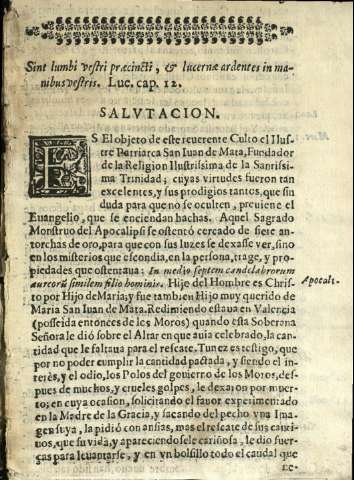 Sint lumbi vestri præcincti, & lucernæ ardentes in ma-
nibus vestris. Luc. cap. 12.
SALVTACION.
ES El objeto de este reuerente Culto el Ilus-
tre Patriarca San Iuan de Mata, Fundador
de la Religion Ilustrissima de la Santissi-
ma Trinidad; cuyas virtudes fueron tan
excelentes, y sus prodigios tantos, que sin
duda para que no se oculten, preuiene el
Euangelio, que se enciendan hachas. Aquel Sagrado
Monstruo del Apocalipsi se ostentò cercado de siete an-
torchas de oro, para que con sus luzes se dexasse ver, sino
en los misterios que escondia, en la persona, trage, y pro-
piedades que ostentaua: In medio septem candelabrorum
aureorũ similem filio hominis. Hijo del Hombre es Chris-
Apocalt.
to por Hijo de Maria; y fue tambien Hijo muy querido de
Maria San Iuan de Mata. Redimiendo estaua en Valencia
(posseida entonces de los Moros) quando esta Soberana
Señora le diò sobre el Altar en que auia celebrado, la can-
tidad que le faltaua para el rescate. Tunez es testigo, que
por no poder cumplir la cantidad pactada, y siendo el in-
terès, y el odio, los Polos del gouierno de los Moros, des-
pues de muchos, y crueles golpes, le dexaron por muer-
to; en cuya ocasion, solicitando el fauor experimentado
en la Madre de la Gracia, y sacando del pecho vna Ima-
gen suya, la pidiò con ansias, mas el rescate de sus cauti-
uos, que su vida, y apareciendosele cariñosa, le diò fuer-
ças para leuantarse, y en vn bolsillo todo el caudal que